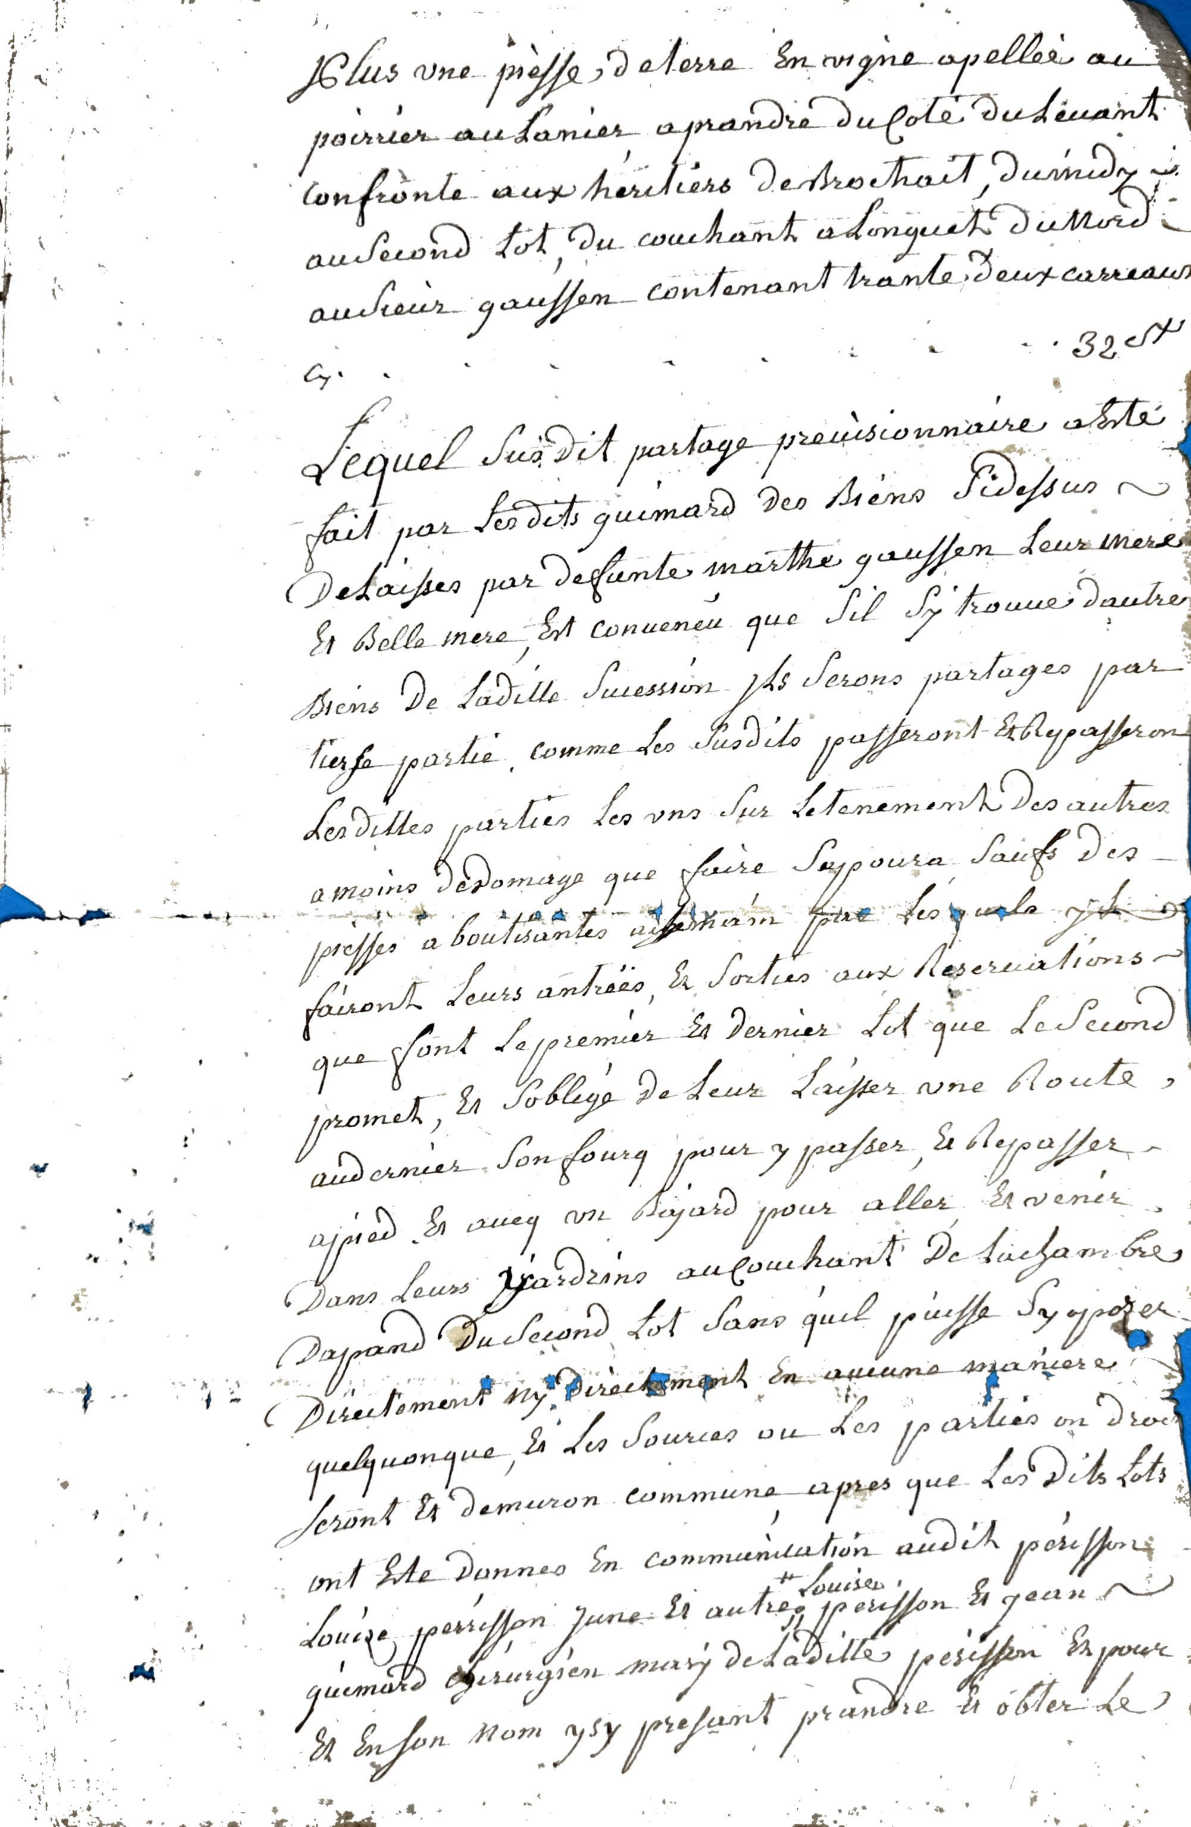 Plus vne piesse de terre En vigne apelleé au
poirrier au Lanier a prandre du Coté du Leuant
confronte aux héritiers de Brochait, du midy
au Second Lot, du couchant a Longuet du Nord
au Sieur gaussen contenant trante deux carreaux
Cy . . . . . . 32 Cx
Lequel Susdit partage preuisionnaire a Esté
fait par Lesdits guimard des Biens Sidessus
Delaisses par defunte marthe gaussen Leur mere
Et Belle mere, Est conueneu que Sil Sy trouue dautres
Biens De Laditte Sucession yls Serons partages par
tierse partie, comme Les Susdits passeront Et Repasseron
Lesdittes parties Les vns Sur Letenement Des autres
a moins dedomage que faire Sepoura Saufs Des
piesses aboutisantes au chemain par Lesquels yls
fairont Leurs antrées, Et Sorties aux Reseruations
que font Le premier Et Dernier Lot que Le Second
promet, Et Soblige de Leur Laisser vne Route,
au dernier Son fourq pour y passer, Et Repasser
a pied Et aueq vn Bajard pour aller Et venir
Dans Leurs jardrins au Couchant De La chambre
Depand Du Second Lot Sans quil puisse Sy opozer
Directement Ny Directement En aucune maniere
quelquonque, Et Les Sources ou Les parties on droi
Seront Et demuron commune, apres que Les Dits Lots
ont Este Donnes En communication audit périsson
Louise
Louize perisson June Et autre perisson Et jean
guimard chirurgien mary de Laditte perisson Et pour
Et En Son Nom ysy presant prandre Et obter Le